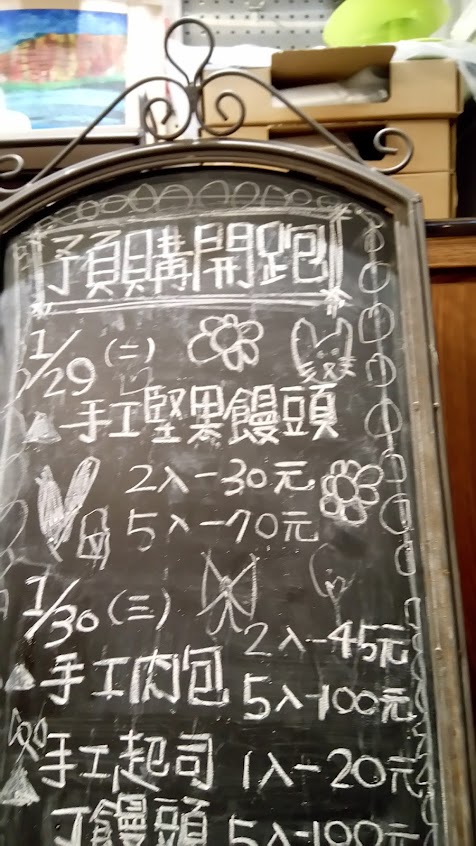 預購開跑
1/29(二)
手工堅果饅頭
2入-30元
5入-70元
1/30(三)
手工肉包
2入-45元
5入-100元
手工起司 1入-20元
饅頭 5入-100元